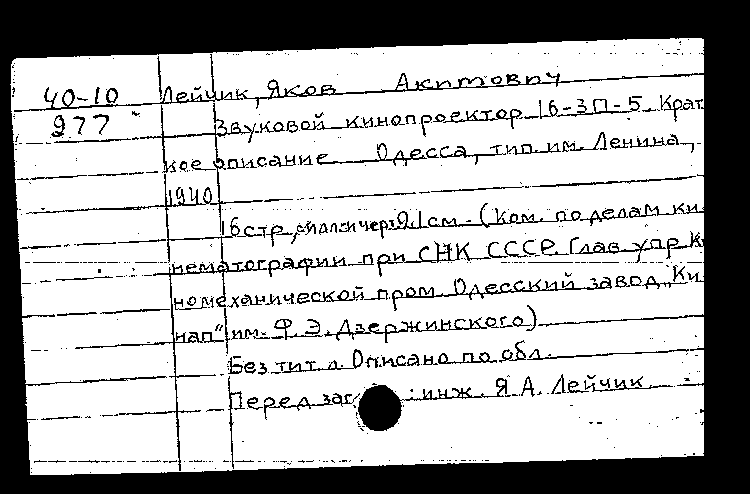 40-10 Лейчик, Яков Акимович
277 Звуковой кинопроектор 16-ЗП-5. Крат
кое описание Одесса, тип. им. Ленина,
1940
16 стр, 21 см. (Ком. по делам ки-
нематографии при СНК СССР. Глав упр Ки
номеханической пром. Одесский завод „Ки-
нап" им. Ф. Э. Дзержинского)
Без тит. л. Описано по обл.
Перед заг : инж. Я. А. Лейчик